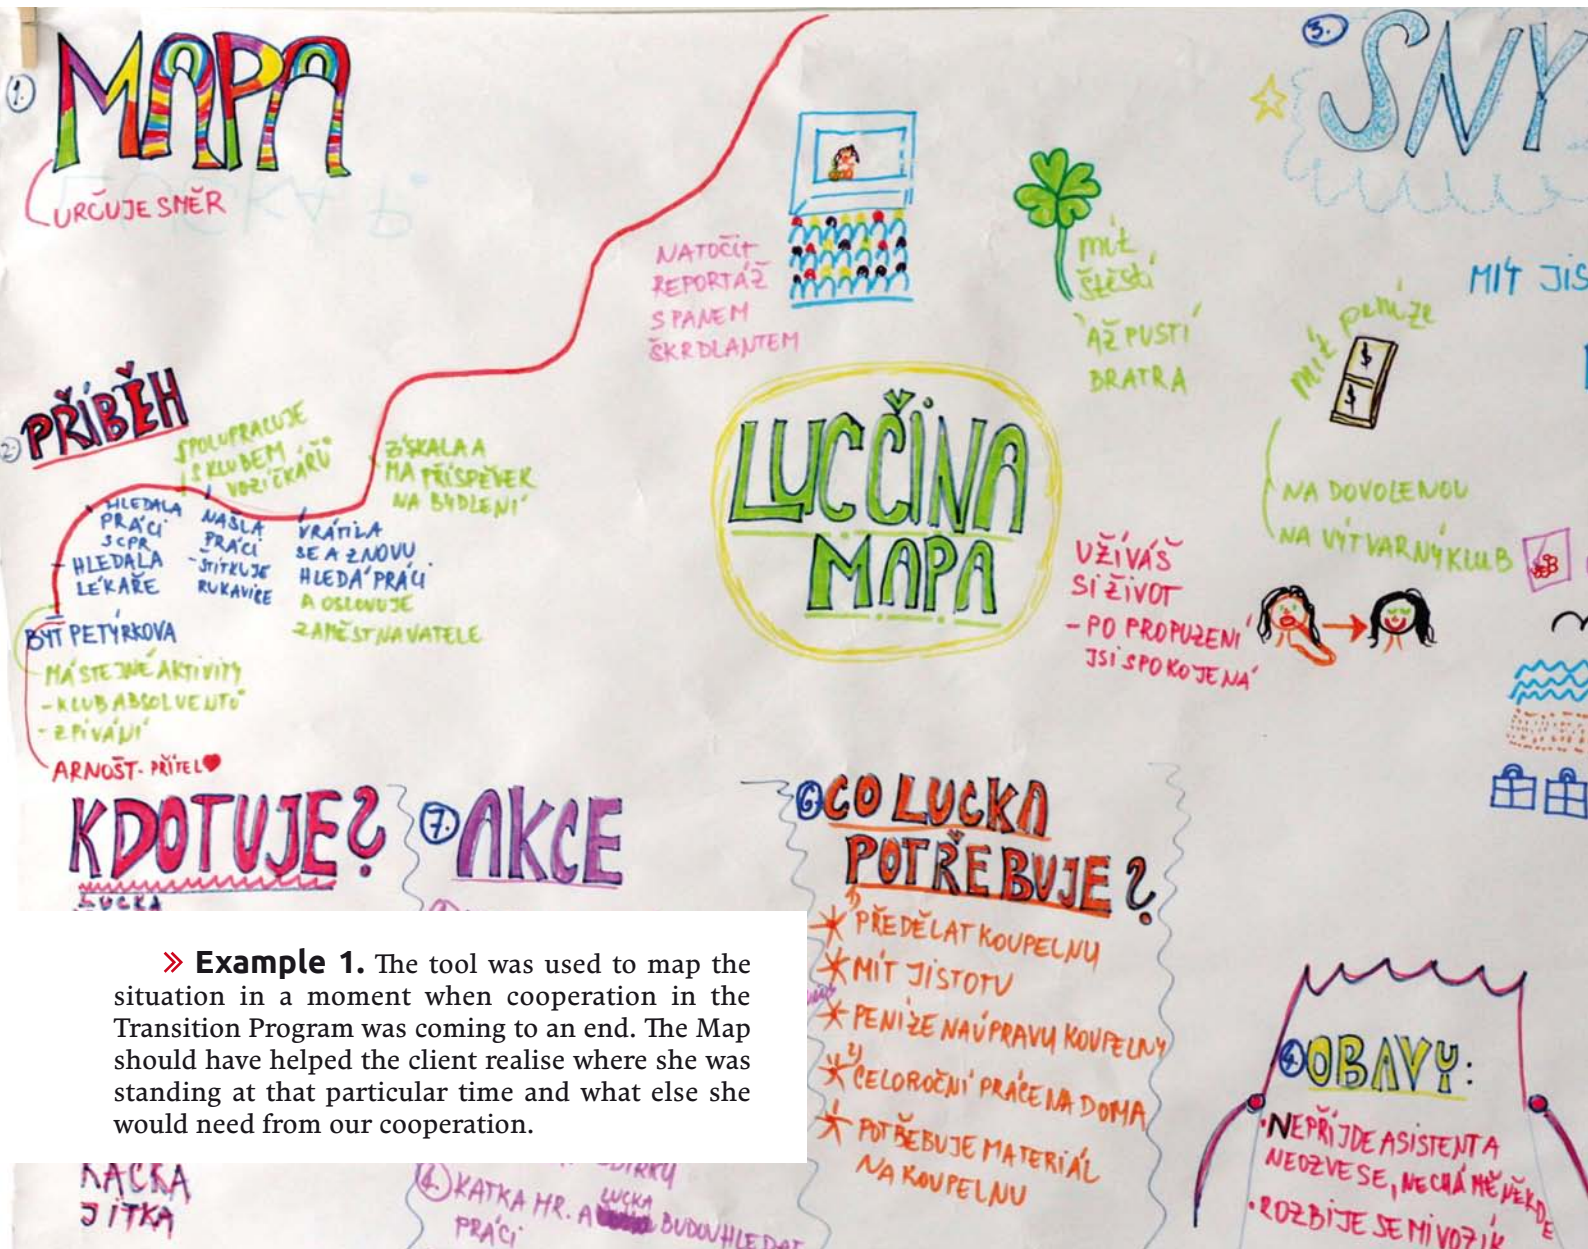 1. MAPA
URČUJE SMĚR
3. SNY
NATOČIT
REPORTÁŽ
S PANEM
ŠKRDLANTEM
mít
štěstí
AŽ PUSTÍ
BRATRA
MÍT JIS
mít peníze
NA DOVOLENOU
NA VÝTVARNÝ KLUB
2. PŘÍBĚH
SPOLUPRACUJE
S KLUBEM
VOZÍČKÁŘŮ
ZÍSKALA A
MÁ PŘÍSPĚVEK
NA BYDLENÍ
HLEDALA
PRÁCI
S CPR
HLEDALA
LÉKAŘE
NAŠLA
PRÁCI
-ŠTÍTKUJE
RUKAVICE
VRÁTILA
SE A ZNOVU
HLEDÁ PRÁCI
A OSLOVUJE
ZAMĚSTNAVATELE
BYT PETÝRKOVA
MÁ STEJNÉ AKTIVITY
- KLUB ABSOLVENTŮ
- ZPÍVÁNÍ
ARNOŠT - PŘÍTEL
LUCČINA
MAPA
UŽÍVÁŠ
SI ŽIVOT
- PO PROPUZENÍ
JSI SPOKOJENÁ
KDO TU JE?
LUCKA
7. AKCE
6. CO LUCKA
POTŘEBUJE?
1) PŘEDĚLAT KOUPELNU
MÍT JISTOTU
PENÍZE NA ÚPRAVU KOUPELNY
2) CELOROČNÍ PRÁCE NA DOMA
POTŘEBUJE MATERIÁL
NA KOUPELNU
4. OBAVY:
• NEPŘIJDE ASISTENT A
NEOZVE SE, NECHÁ MĚ NĚKDE
• ROZBIJE SE MI VOZÍK
» Example 1. The tool was used to map the
situation in a moment when cooperation in the
Transition Program was coming to an end. The Map
should have helped the client realise where she was
standing at that particular time and what else she
would need from our cooperation.
KAČKA
JITKA
KATKA HR. A LUCKA BUDOU HLEDAT
PRÁCI